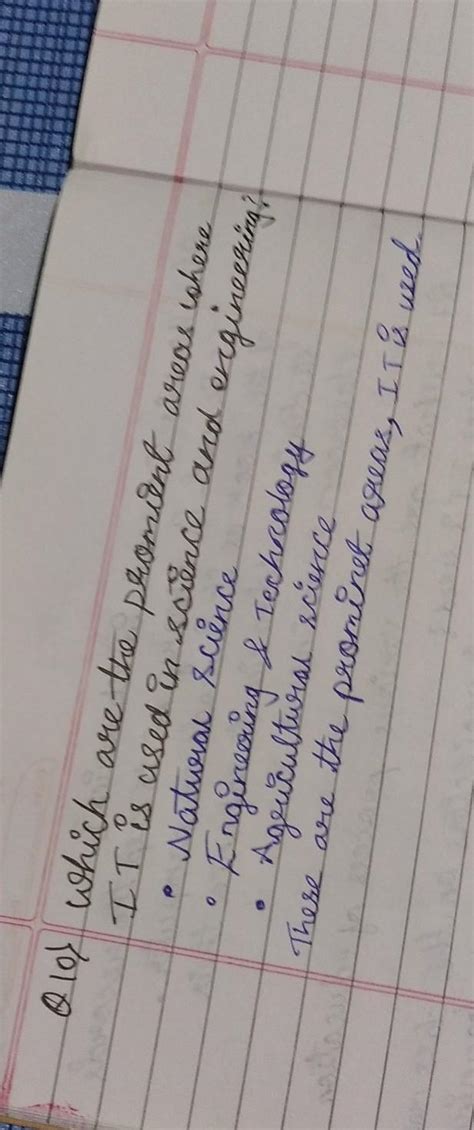 Q 10} Which are the promient areas where
IT is used in science and engineering?
• Natural science
• Engineering & Technology
• Agricultural science
These are the prominet areas, IT is used.